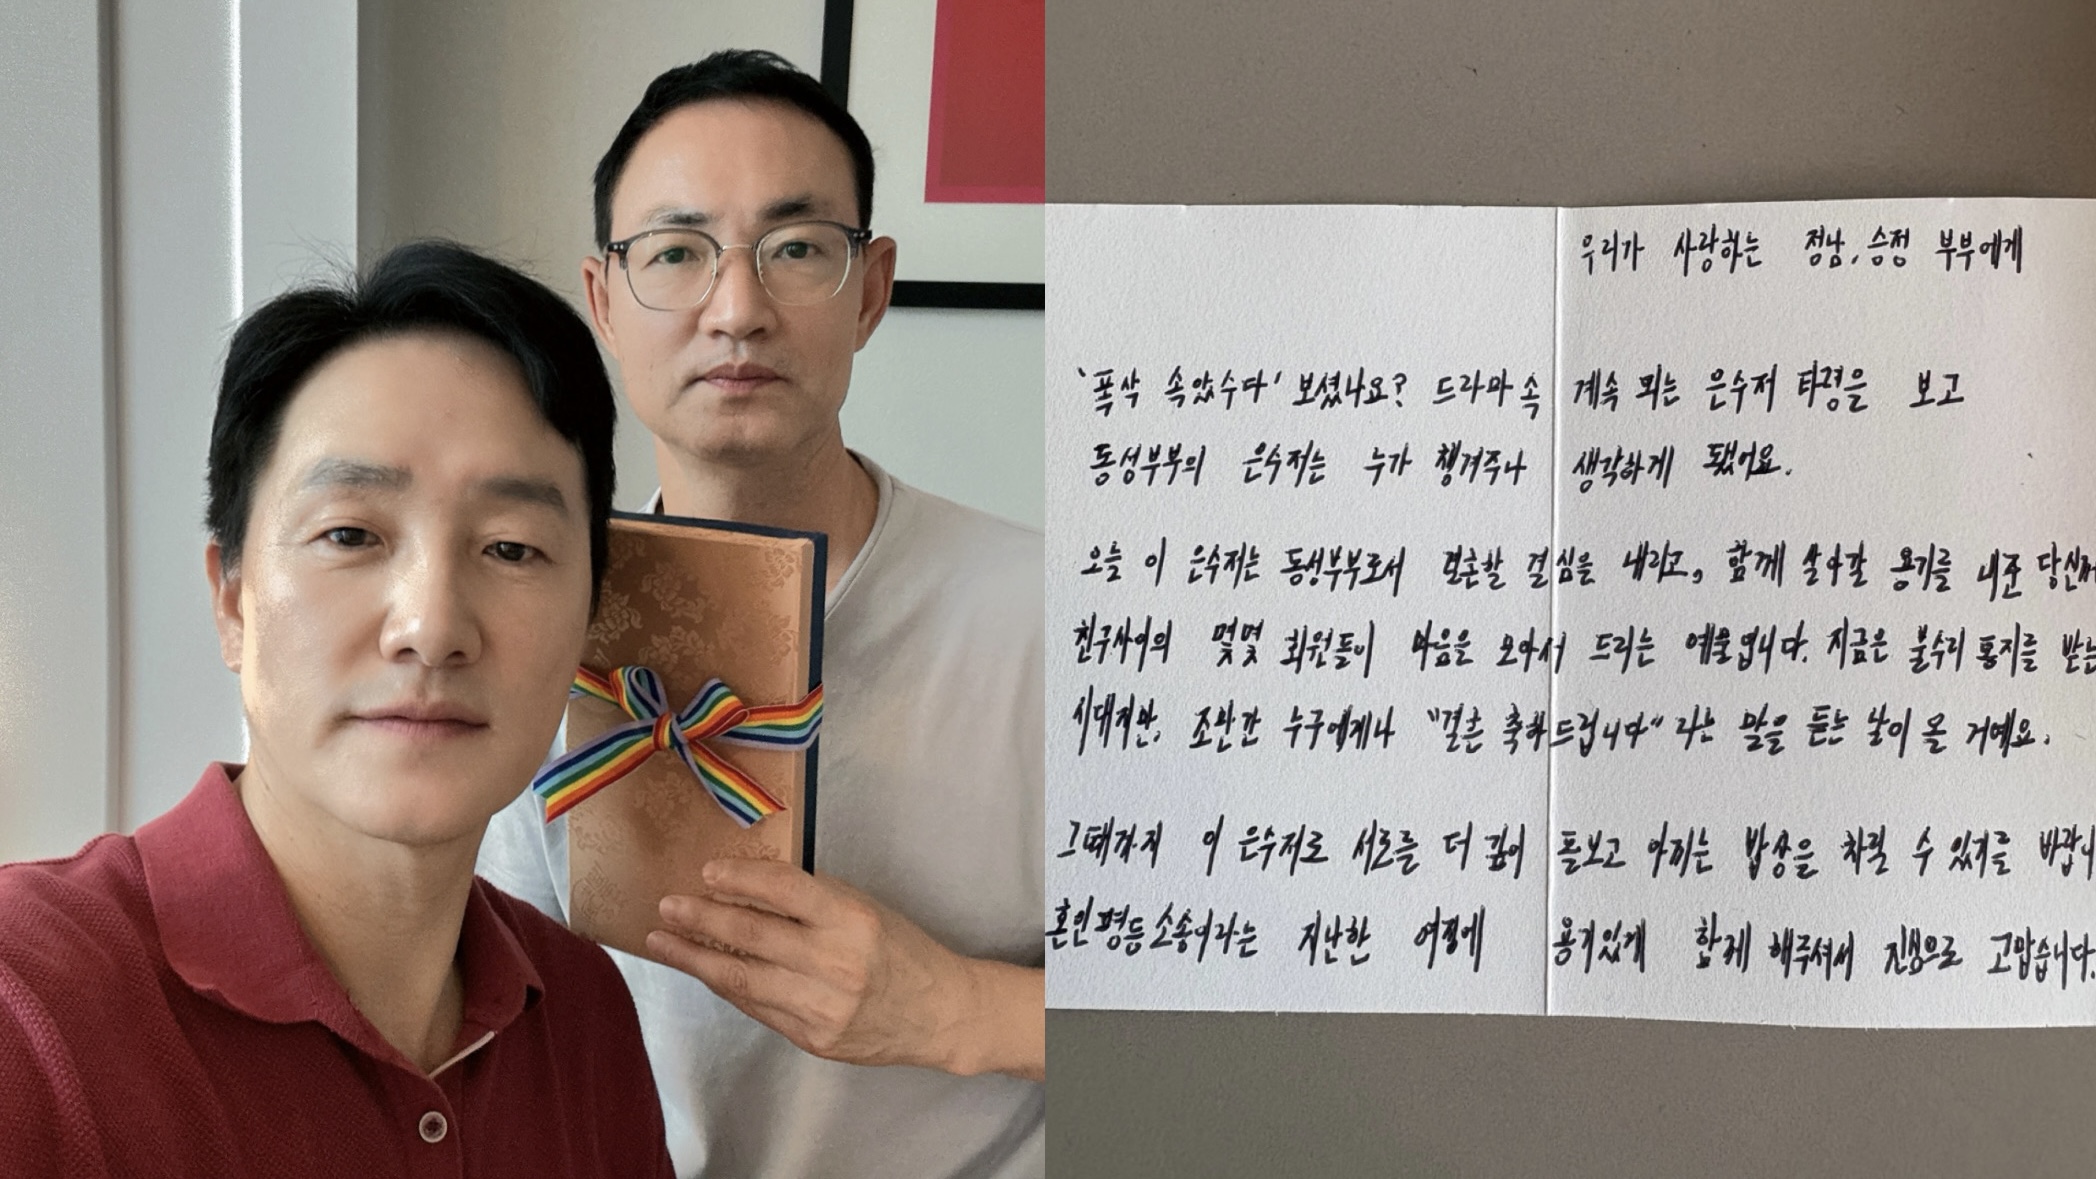 우리가 사랑하는 정남, 승정 부부에게
'폭삭 속았수다' 보셨나요? 드라마 속 계속 뫼는 은수저 타령을 보고
동성부부의 은수저는 누가 챙겨주나 생각하게 됐어요.
오늘 이 은수저는 동성부부로서 결혼할 결심을 내리고, 함께 살아갈 용기를 내준 당신께
친구사이의 몇몇 회원들이 마음을 모아서 드리는 예물입니다. 지금은 불수리 통지를 받는
시대지만, 조만간 누구에게나 "결혼 축하드립니다" 라는 말을 듣는 날이 올 거예요.
그때까지 이 은수저로 서로를 더 깊이 돌보고 아끼는 밥상을 차릴 수 있기를 바랍니
혼인평등소송이라는 지난한 여정에 용기있게 함께 해주셔서 진심으로 고맙습니다.